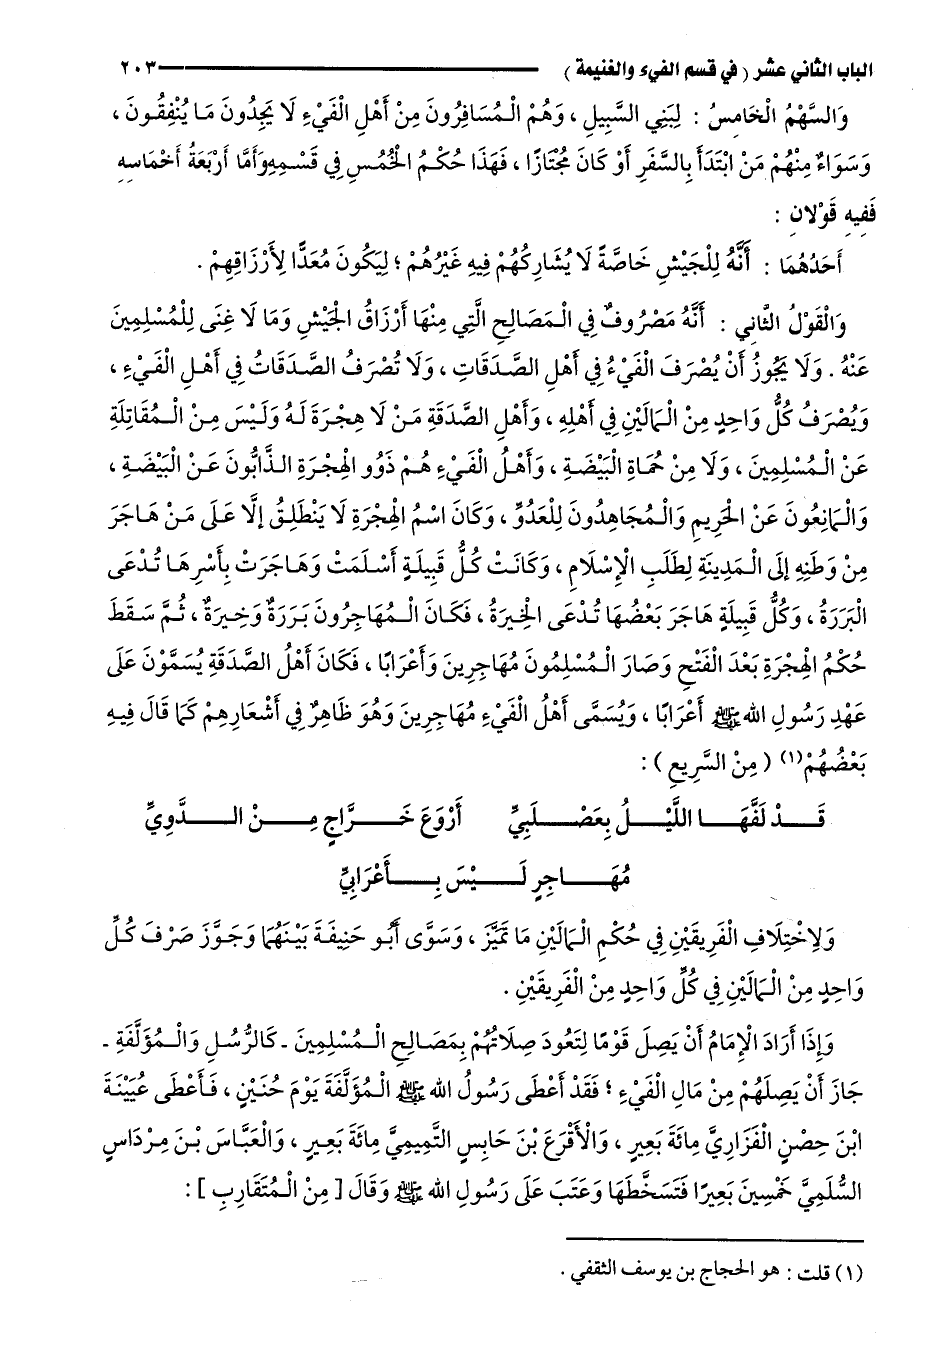 الباب الثاني عشر ( في قسم الفيء والغنيمة ) ٢٠٣
وَالسَّهْمُ الْخَامِسُ : لِبَنِي السَّبِيلِ ، وَهُمُ الْمُسَافِرُونَ مِنْ أَهْلِ الْفَيْءِ لَا يَجِدُونَ مَا يُنْفِقُونَ ،
وَسَوَاءٌ مِنْهُمْ مَنْ ابْتَدَأَ بِالسَّفَرِ أَوْ كَانَ مُجْتَازًا ، فَهَذَا حُكْمُ الْخُمُسِ فِي قَسْمِهِ وَأَمَّا أَرْبَعَةُ أَخْمَاسِهِ
فَفِيهِ قَوْلَانِ :
أَحَدُهُمَا : أَنَّهُ لِلْجَيْشِ خَاصَّةً لَا يُشَارِكُهُمْ فِيهِ غَيْرُهُمْ ؛ لِيَكُونَ مُعَدًّا لِأَرْزَاقِهِمْ .
وَالْقَوْلُ الثَّانِي : أَنَّهُ مَصْرُوفٌ فِي الْمَصَالِحِ الَّتِي مِنْهَا أَرْزَاقُ الْجَيْشِ وَمَا لَا غِنَى لِلْمُسْلِمِينَ
عَنْهُ . وَلَا يَجُوزُ أَنْ يُصْرَفَ الْفَيْءُ فِي أَهْلِ الصَّدَقَاتِ ، وَلَا تُصْرَفُ الصَّدَقَاتُ فِي أَهْلِ الْفَيْءِ ،
وَيُصْرَفُ كُلُّ وَاحِدٍ مِنْ الْمَالَيْنِ فِي أَهْلِهِ ، وَأَهْلِ الصَّدَقَةِ مَنْ لَا هِجْرَةَ لَهُ وَلَيْسَ مِنْ الْمُقَاتِلَةِ
عَنْ الْمُسْلِمِينَ ، وَلَا مِنْ حُمَاةِ الْبَيْضَةِ ، وَأَهْلُ الْفَيْءِ هُمْ ذَوُو الْهِجْرَةِ الذَّابُّونَ عَنْ الْبَيْضَةِ ،
وَالْمَانِعُونَ عَنْ الْحَرِيمِ وَالْمُجَاهِدُونَ لِلْعَدُوِّ ، وَكَانَ اسْمُ الْهِجْرَةِ لَا يَنْطَلِقُ إلَّا عَلَى مَنْ هَاجَرَ
مِنْ وَطَنِهِ إلَى الْمَدِينَةِ لِطَلَبِ الْإِسْلَامِ ، وَكَانَتْ كُلُّ قَبِيلَةٍ أَسْلَمَتْ وَهَاجَرَتْ بِأَسْرِهَا تُدْعَى
الْبَرَرَةُ ، وَكُلُّ قَبِيلَةٍ هَاجَرَ بَعْضُهَا تُدْعَى الْخِيَرَةُ ، فَكَانَ الْمُهَاجِرُونَ بَرَرَةٌ وَخِيَرَةٌ ، ثُمَّ سَقَطَ
حُكْمُ الْهِجْرَةِ بَعْدَ الْفَتْحِ وَصَارَ الْمُسْلِمُونَ مُهَاجِرِينَ وَأَعْرَابًا ، فَكَانَ أَهْلُ الصَّدَقَةِ يُسَمَّوْنَ عَلَى
عَهْدِ رَسُولِ اللهِ ﷺ أَعْرَابًا ، وَيُسَمَّى أَهْلُ الْفَيْءِ مُهَاجِرِينَ وَهُوَ ظَاهِرٌ فِي أَشْعَارِهِمْ كَمَا قَالَ فِيهِ
بَعْضُهُمْ (١) ( مِنْ السَّرِيعِ ) :
قَدْ لَفَّهَا اللَّيْلُ بِعَصْلَبِيِّ أَرْوَعَ خَرَّاجٍ مِنْ الدَّوِيِّ
مُهَاجِرٍ لَيْسَ بِأَعْرَابِيِّ
وَلِاخْتِلَافِ الْفَرِيقَيْنِ فِي حُكْمِ الْمَالَيْنِ مَا تَمَيَّزَ ، وَسَوَّى أَبُو حَنِيفَةَ بَيْنَهُمَا وَجَوَّزَ صَرْفَ كُلِّ
وَاحِدٍ مِنْ الْمَالَيْنِ فِي كُلِّ وَاحِدٍ مِنْ الْفَرِيقَيْنِ .
وَإِذَا أَرَادَ الْإِمَامُ أَنْ يَصِلَ قَوْمًا لِتَعُودَ صِلَاتُهُمْ بِمَصَالِحِ الْمُسْلِمِينَ - كَالرُّسُلِ وَالْمُؤَلَّفَةِ -
جَازَ أَنْ يَصِلَهُمْ مِنْ مَالِ الْفَيْءِ ؛ فَقَدْ أَعْطَى رَسُولُ اللهِ ﷺ الْمُؤَلَّفَةَ يَوْمَ حُنَيْنٍ ، فَأَعْطَى عُيَيْنَةَ
ابْنَ حِصْنٍ الْفَزَارِيَّ مِائَةَ بَعِيرٍ ، وَالْأَقْرَعَ بْنَ حَابِسٍ التَّمِيمِيَّ مِائَةَ بَعِيرٍ ، وَالْعَبَّاسَ بْنَ مِرْدَاسٍ
السُّلَمِيَّ خَمْسِينَ بَعِيرًا فَتَسَخَّطَهَا وَعَتَبَ عَلَى رَسُولِ اللهِ ﷺ وَقَالَ [ مِنْ الْمُتَقَارِبِ ] :
(١) قلت : هو الحجاج بن يوسف الثقفي .